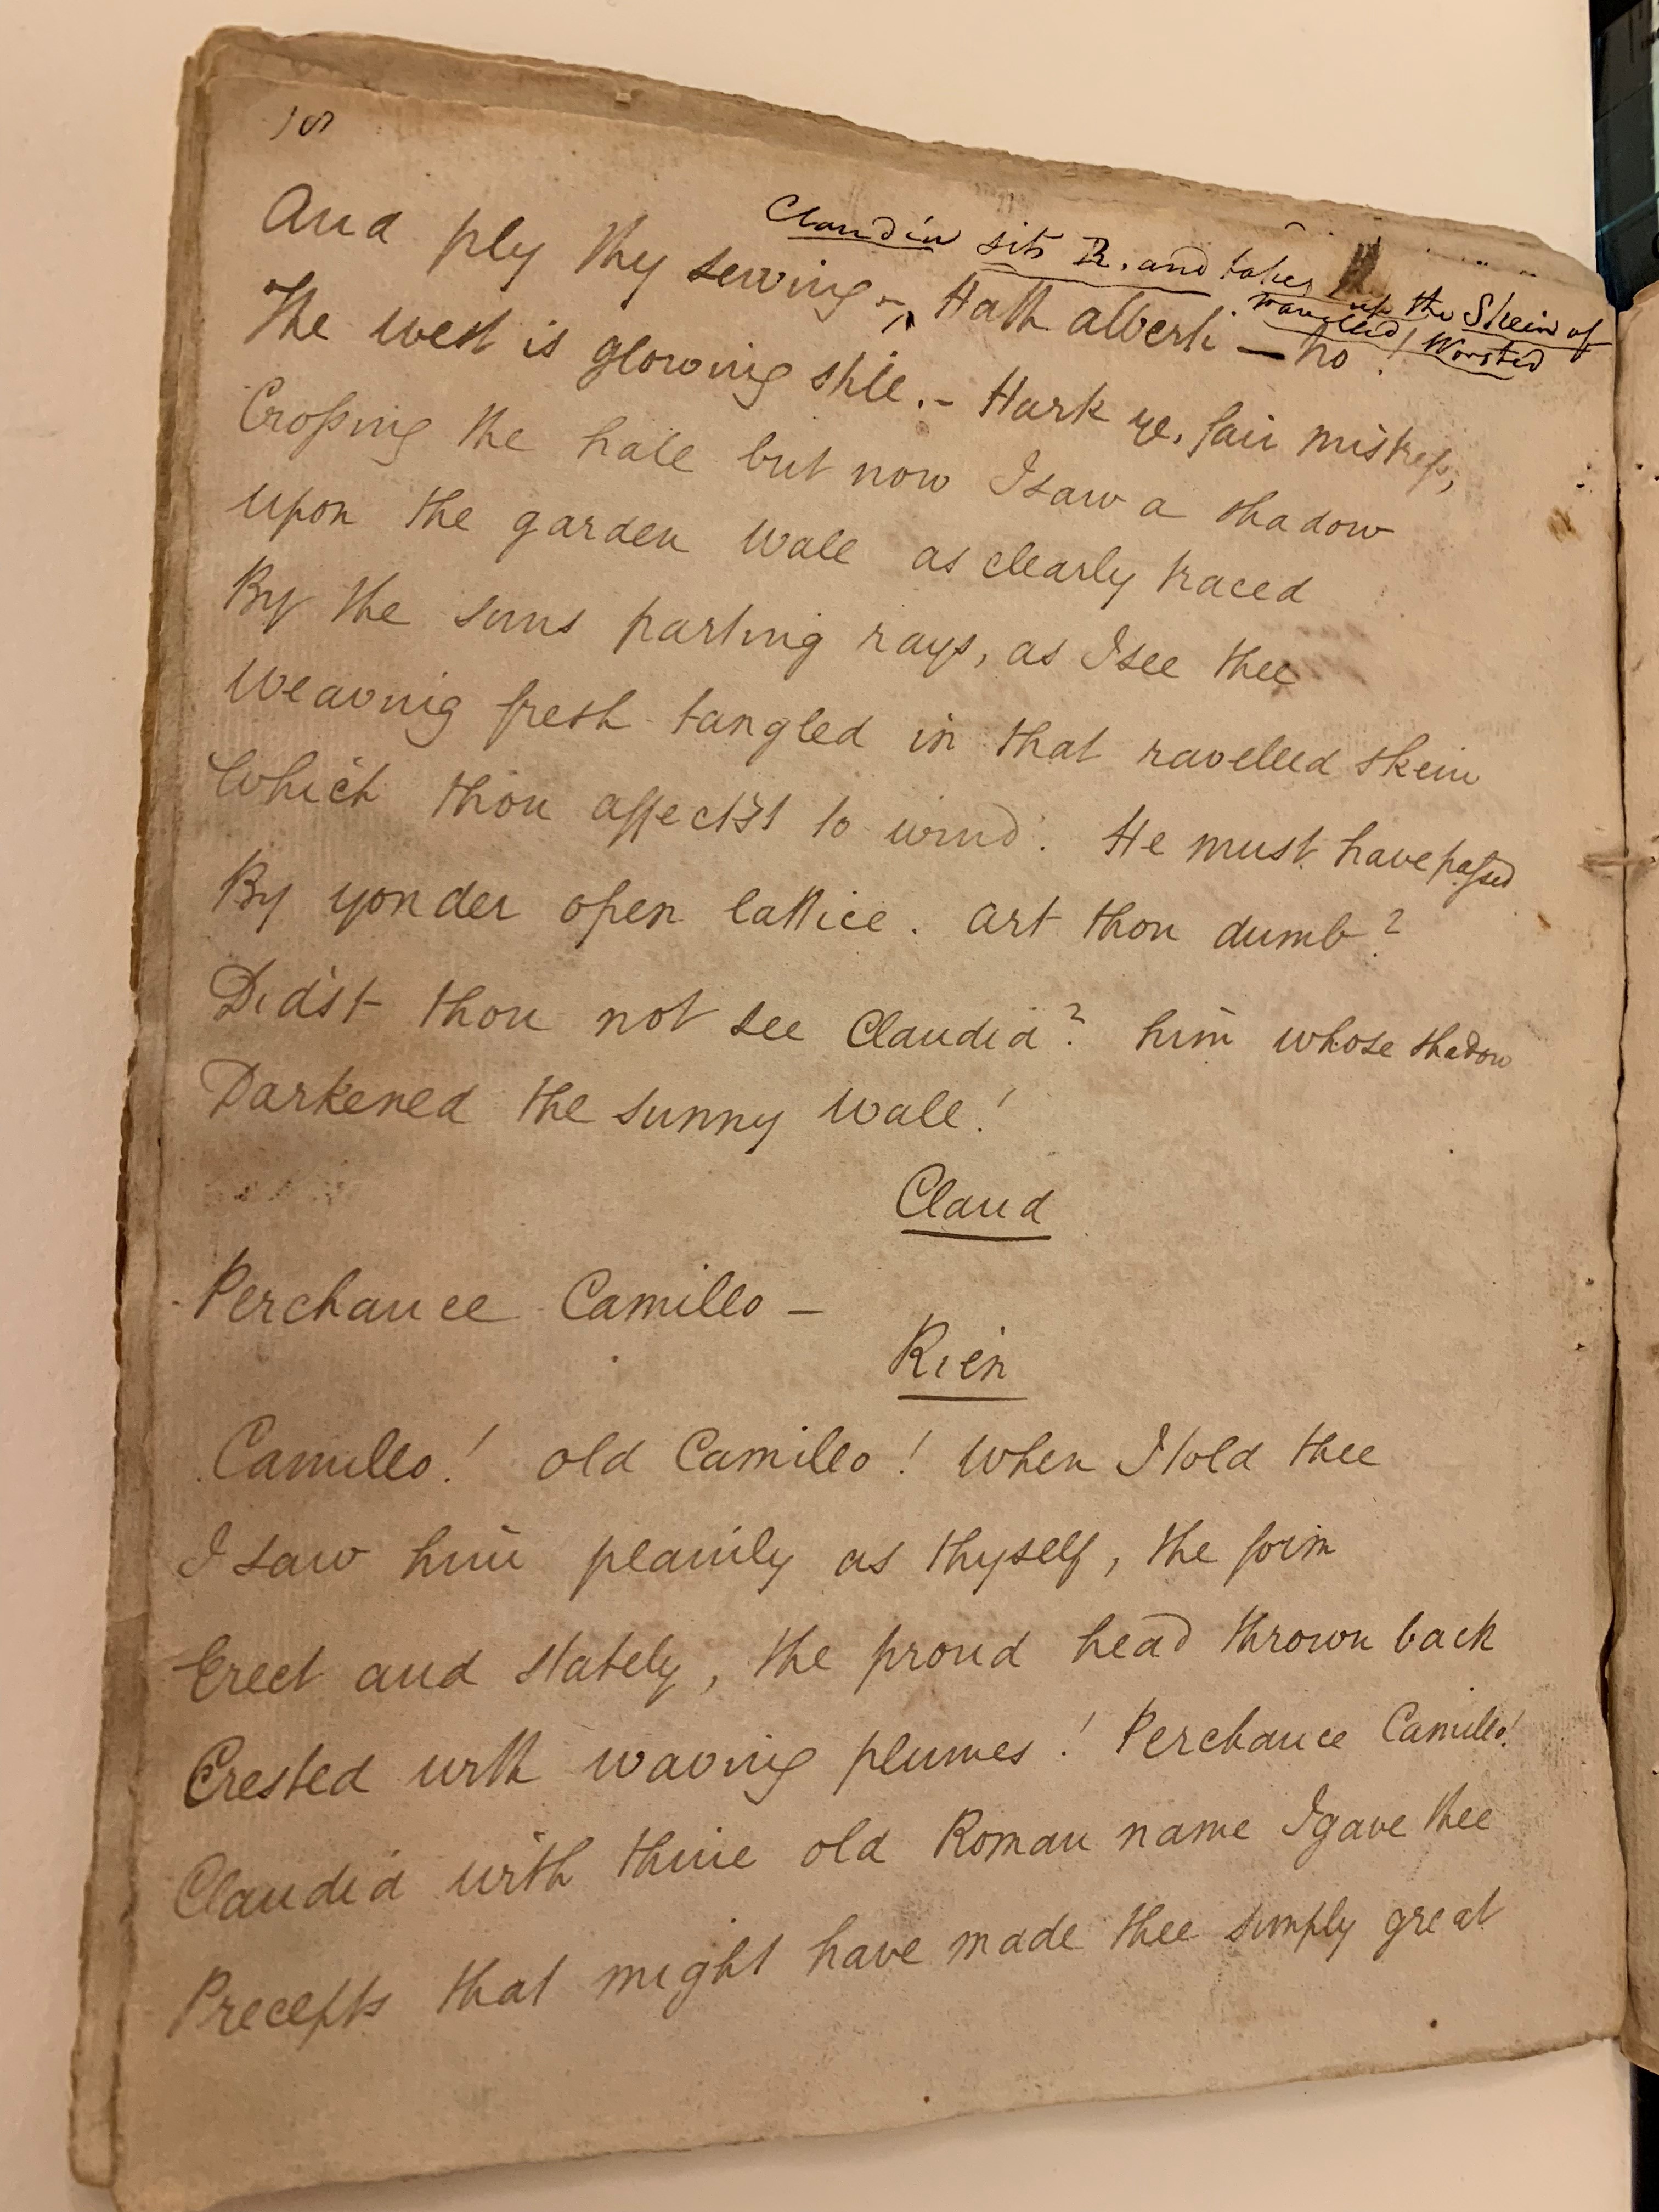 18
Claudia sits R. and takes up the Skein of
ravelled Worsted
And ply thy sewing –, Hath alberti — no !
The west is glowing still. – Hark ye, fair mistress,
Crossing the hall but now I saw a shadow
Upon the garden wall as clearly traced
By the suns parting rays, as I see thee
Weaving fresh tangled in that ravelled skein
Which thou affectst to wind. He must have passed
By yonder open lattice. Art thou dumb?
Didst thou not see Claudia? him whose shadow
Darkened the sunny wall!
Claud
Perchance Camillo –
Rien
Camillo! old Camillo! When I told thee
I saw him plainly as thyself, the form
Erect and stately, the proud head thrown back
Crested with waving plumes! Perchance Camillo!
Claudia with thine old Roman name I gave thee
Precepts that might have made thee simply great